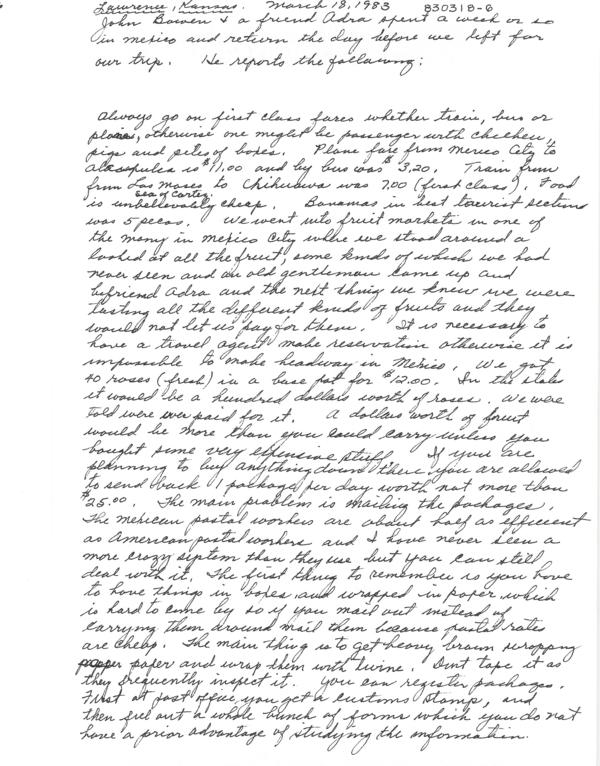 Lawrence, Kansas. March 18, 1983 830318-6
John Bowen & a friend Adra spent a week or so
in mexico and return the day before we left for
our trip. He reports the following:
Always go on first class fares whether train, bus or
plane, otherwise one might be passenger with chicken,
pigs and piles of boxes. Plane fare from Mexico City to
Alcapulca is $11.00 and by bus was $3.20. Train from
from Los Moses to Chihuawa was 7.00 (first class). Food
Sea of Cortez
is unbelievably cheap. Bananas in best tourist section
was 5 pecos. We went into fruit markets in one of
the many in mexico City where we stood around a
looked at all the fruit, some kinds of which we had
never seen and an old gentleman came up and
befriend Adra and the next thing we knew we were
tasting all the different kinds of fruits and they
would not let us pay for them. It is necessary to
have a travel agent make reservation otherwise it is
impossible to make headway in Mexico. We got
40 roses (fresh) in a base pot for $12.00. In the states
it would be a hundred dollars worth of roses. We were
told were over paid for it. A dollars worth of fruit
would be more than you could carry unless you
bought some very expensive stuff. If you are
planning to buy anything down there you are allowed
to send back 1 package per day worth not more than
$25.00. The main problem is mailing the packages.
The mexican postal workers are about half as efficient
as American postal workers and I have never seen a
more crazy system than they use but you can still
deal with it. The first thing to remember is you have
to have things in boxes and wrapped in paper which
is hard to come by so if you mail out instead of
carrying them around mail them because postal rates
are cheap. The main thing is to get heavy brown wrapping
paper and wrap them with twine. Dont tape it as
they frequently inspect it. You can register packages.
First at post office you get a customs stamp, and
then fill out a whole bunch of forms which you do not
have a prior advantage of studying the information.